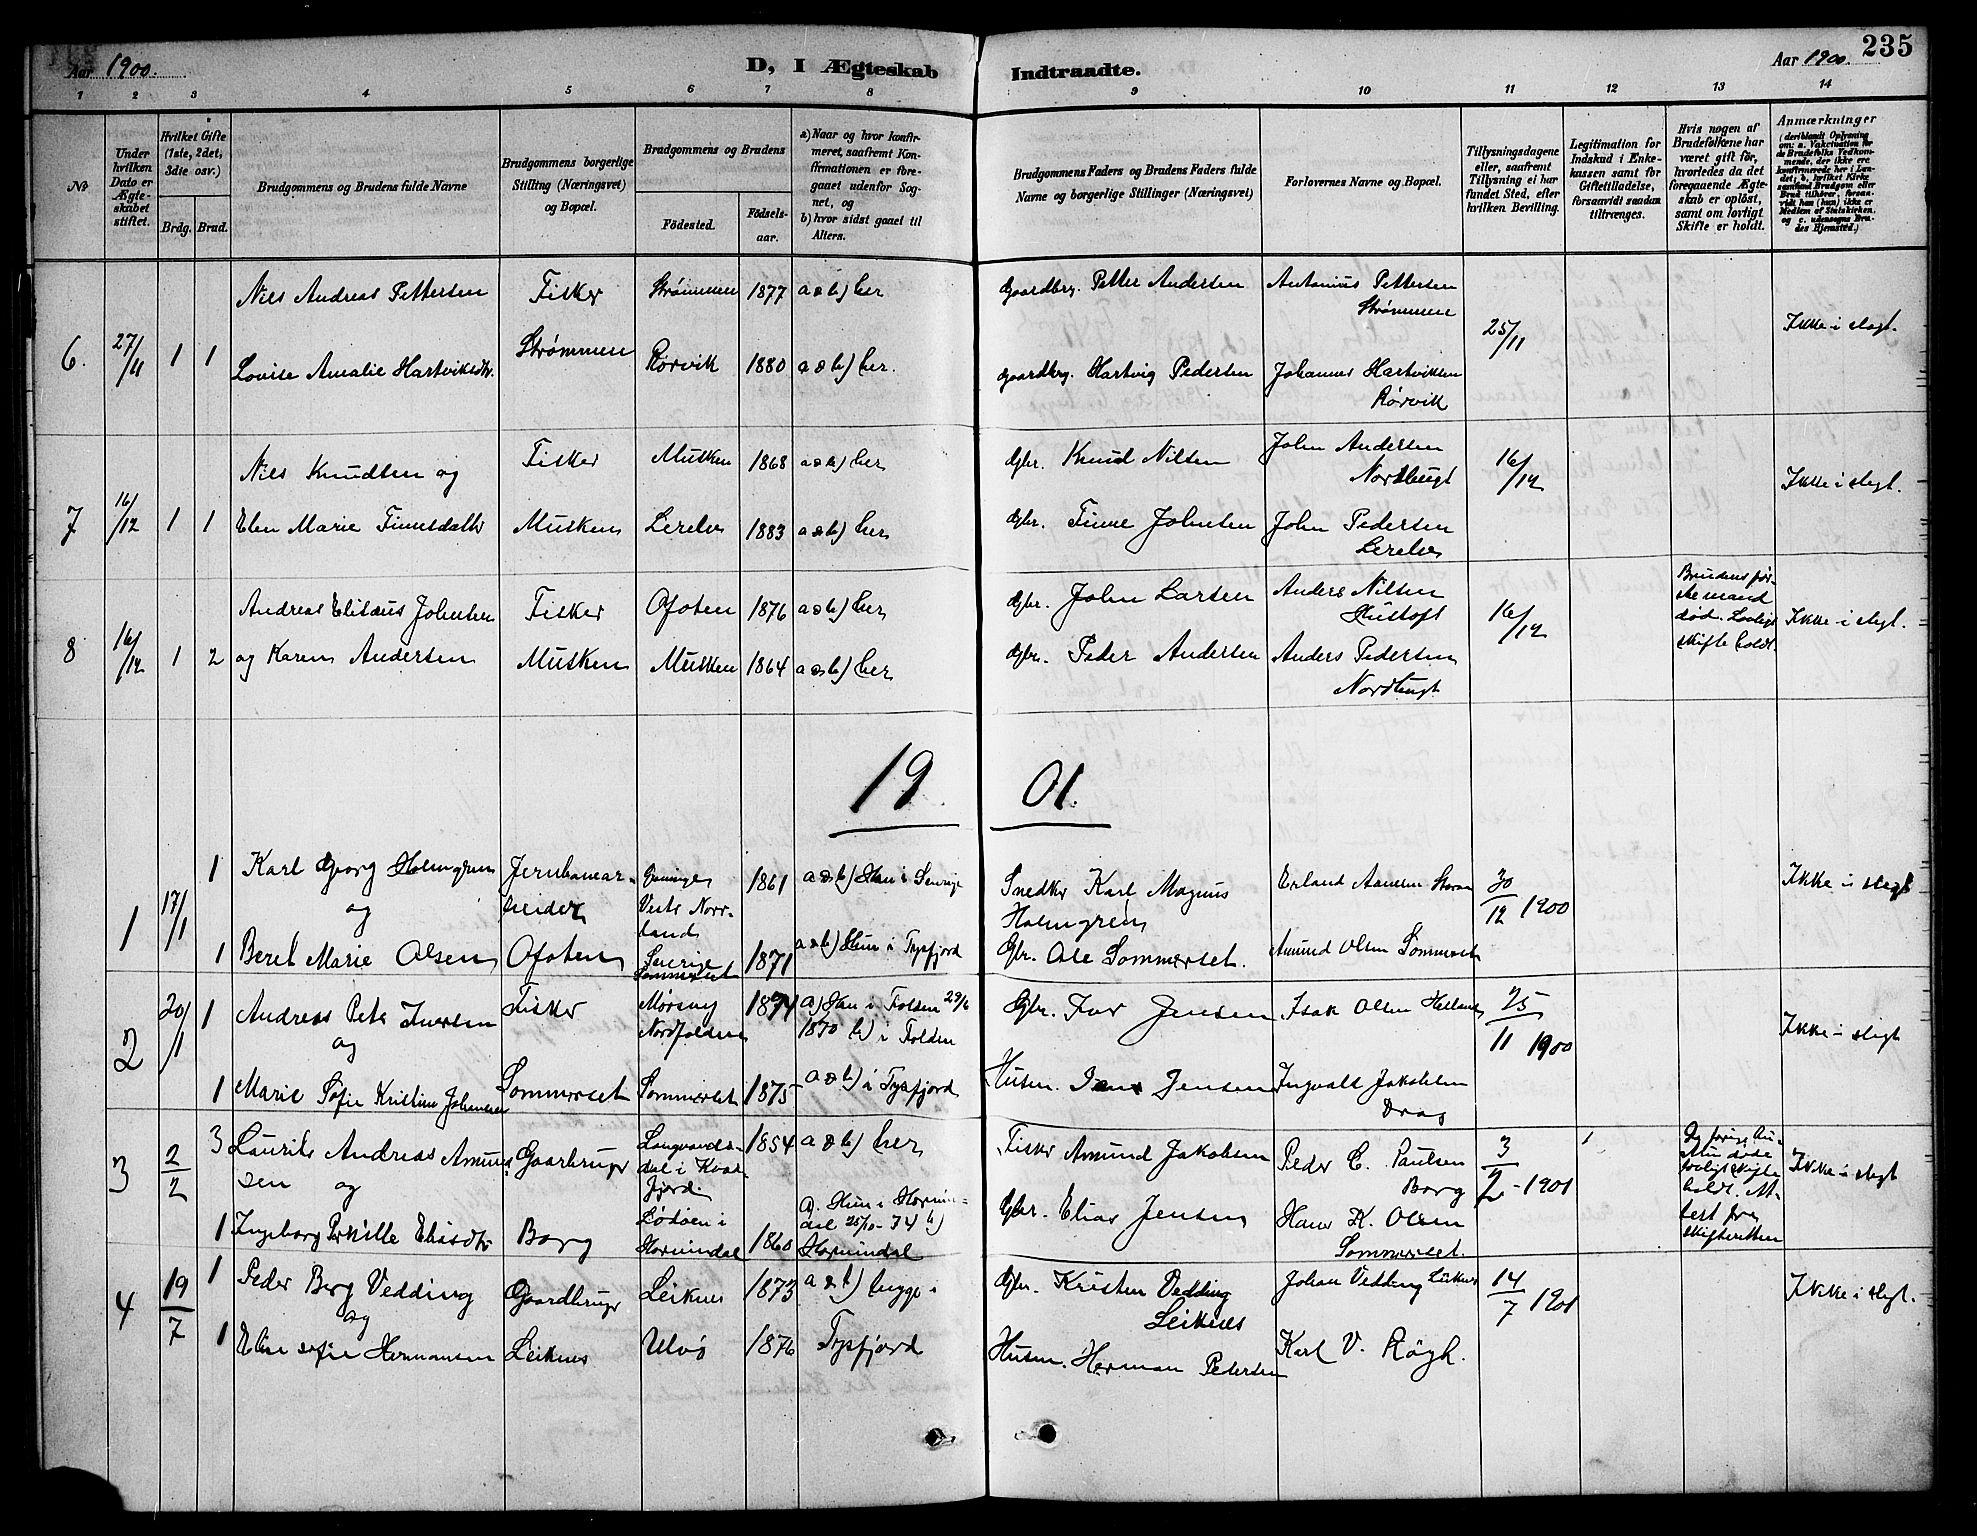 Aar 1900.
D, I Ægteskab Indtraadte.
Aar 1900.
235
1 2 3 4 5 6 7 8 9 10 11 12 13 14
№
Under hvilken Dato er Ægteskabet stiftet.
Hvilket Gifte (1ste, 2det, 3die osv.)
Brdg. Brud.
Brudgommens og Brudens fulde Navne
Brudgommens borgerlige Stilling (Næringsvei) og Bopæl.
Brudgommens og Brudens
Fødested.
Fødselsaar.
a) Naar og hvor konfirmeret, saafremt Konfirmationen er foregaaet udenfor Sognet, og
b) hvor sidst gaaet til Alters.
Brudgommens Faders og Brudens Faders fulde Navne og borgerlige Stillinger (Næringsvei)
Forlovernes Navne og Bopæl.
Tillysningsdagene eller, saafremt Tillysning ei har fundet Sted, efter hvilken Bevilling.
Legitimation for Indskud i Enkekassen samt for Giftetilladelse, forsaavidt saadan tiltrænges.
Hvis nogen af Brudefolkene har været gift før, hvorledes da det foregaaende Ægteskab er opløst, samt om lovligt Skifte er holdt.
Anmærkninger
(deriblandt Oplysning om: a. Vakcination for de Brudefolks Vedkommende, der ikke ere konfirmerede her i Landet; b. hvilket Kirkesamfund Brudgom eller Brud tilhører, forsaavidt han (hun) ikke er Medlem af Statskirken, og c. udensogns Brudes Hjemsted.)
Nils Andreas Pettersen Fisker Strømmen 1877 a & b) her Gaardbrg. Petter Andersen Antonius Pettersen
Strømmen
6. 27/11 1 1 Strømmen 25/11 Ikke i slegt.
Lovise Amalie Hartviksdtr. Rørvik 1880 a & b) her. Gaardbrg. Hartvig Pedersen Johannes Hartviksen
Rørvik
Nils Knudsen og Fisker Musken 1868 a & b) her Gbr. Knud Nilsen John Andersen
Nordbugt 16/12 Ikke i slegt.
7 16/12 1 1 Elen Marie Finnesdatter Musken 1883 a & b) her Gbr. Finne Johnsen John Pedersen
Andreas Elisæus Johnsen Fisker Ofoten 1876 a & b) her Gbr. John Larsen Anders Nilsen
16/12 Brudens første mand død. Lovligt skifte holdt. Ikke i slegt.
8 16/12 1 2 og Karen Andersen Musken Musken 1864 a & b) her Gbr. Peder Andersen Anders Pedersen
Nordbugt
19 01.
1 Karl Georg Holmgren Jernbanear- 1861 a & b) Han i Sverige Snedker Karl Magnus Erland Aansen 30/12 1900 Ikke i slegt
1 17/1 og beider Vester Norrland Holmgren
1 Beret Marie Olsen Ofoten Sverige
Sommerset 1871 a & b) Hun i Tysfjord Gbr. Ole Sommerset. Amund Olsen Sommerset
2 20/1 1 Andreas Peter Iversen Fisker Mørsvig 1874 a) Han i Folden 29/6 Gbr. Ivar Jensen Isak Olsen Helland 25/11 1900 Ikke i slegt
og Nordfolden 1870 b) i Folden
1 Marie Sofie Kristine Johnsen Sommerset Sommerset 1875 a & b) i Tysfjord Husm. Jens Jensen Ingvald Jakobsen
Drag
3 2/2 3 Laurits Andreas Amund- Gaarbruger Langvandsdal i Kvadfjord. 1854 a & b) her Fisker Amund Jakobsen Peder C. Paulsen 3/2 - 1901 Ikke i slegt
sen og Borg
lovligt skifte holdt. Attest fra skifteretten
1 Ingeborg Elisdtr Borg i
Hornindal 1860 a). Hun i Hornindal 25/10-74 b) Hornindal Gbr. Elias Jensen Hans K. Olsen
Sommerset.
4 19/7 1 Peder Berg Vedding Gaardbruger Leiknes 1873 a & b) begge i Gbr. Kristen Vedding Johan Vedding Leiknes 14/7 1901 Ikke i slegt.
og Leiknes
1 Eline Sofie Hermansen Leiknes Ulvø 1876 Tysfjord Husm. Herman Pedersen Karl V. Røgh.